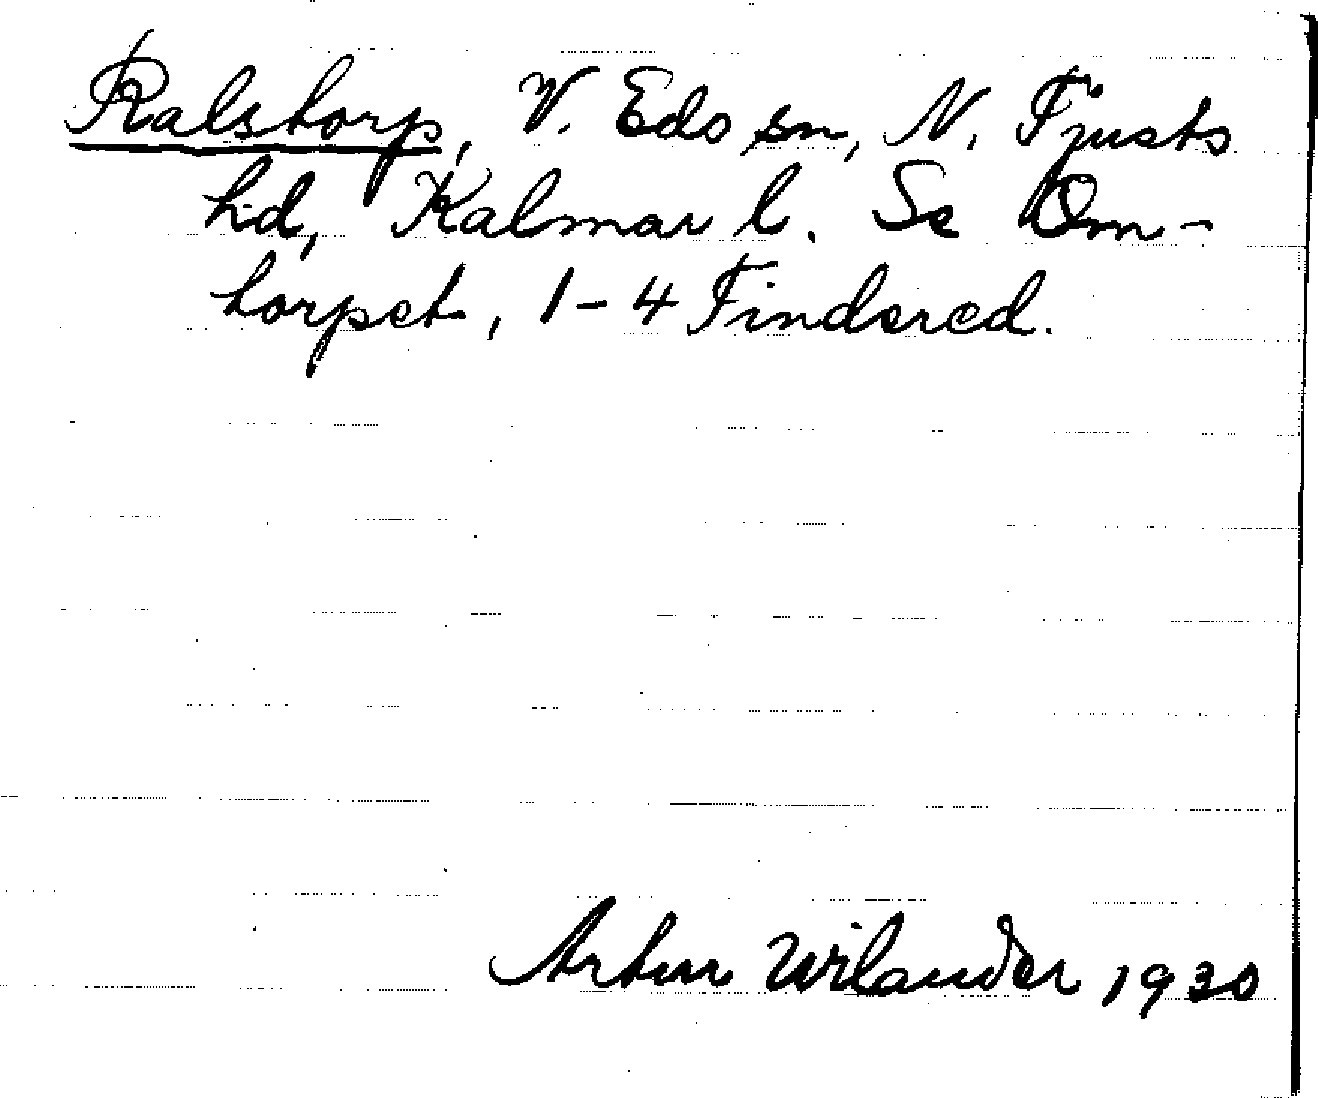 Ralstorp, V. Eds sn, N. Tjusts
hd, Kalmar l. Se Om-
torpet, 1-4 Findered.
Artur Wilander 1930